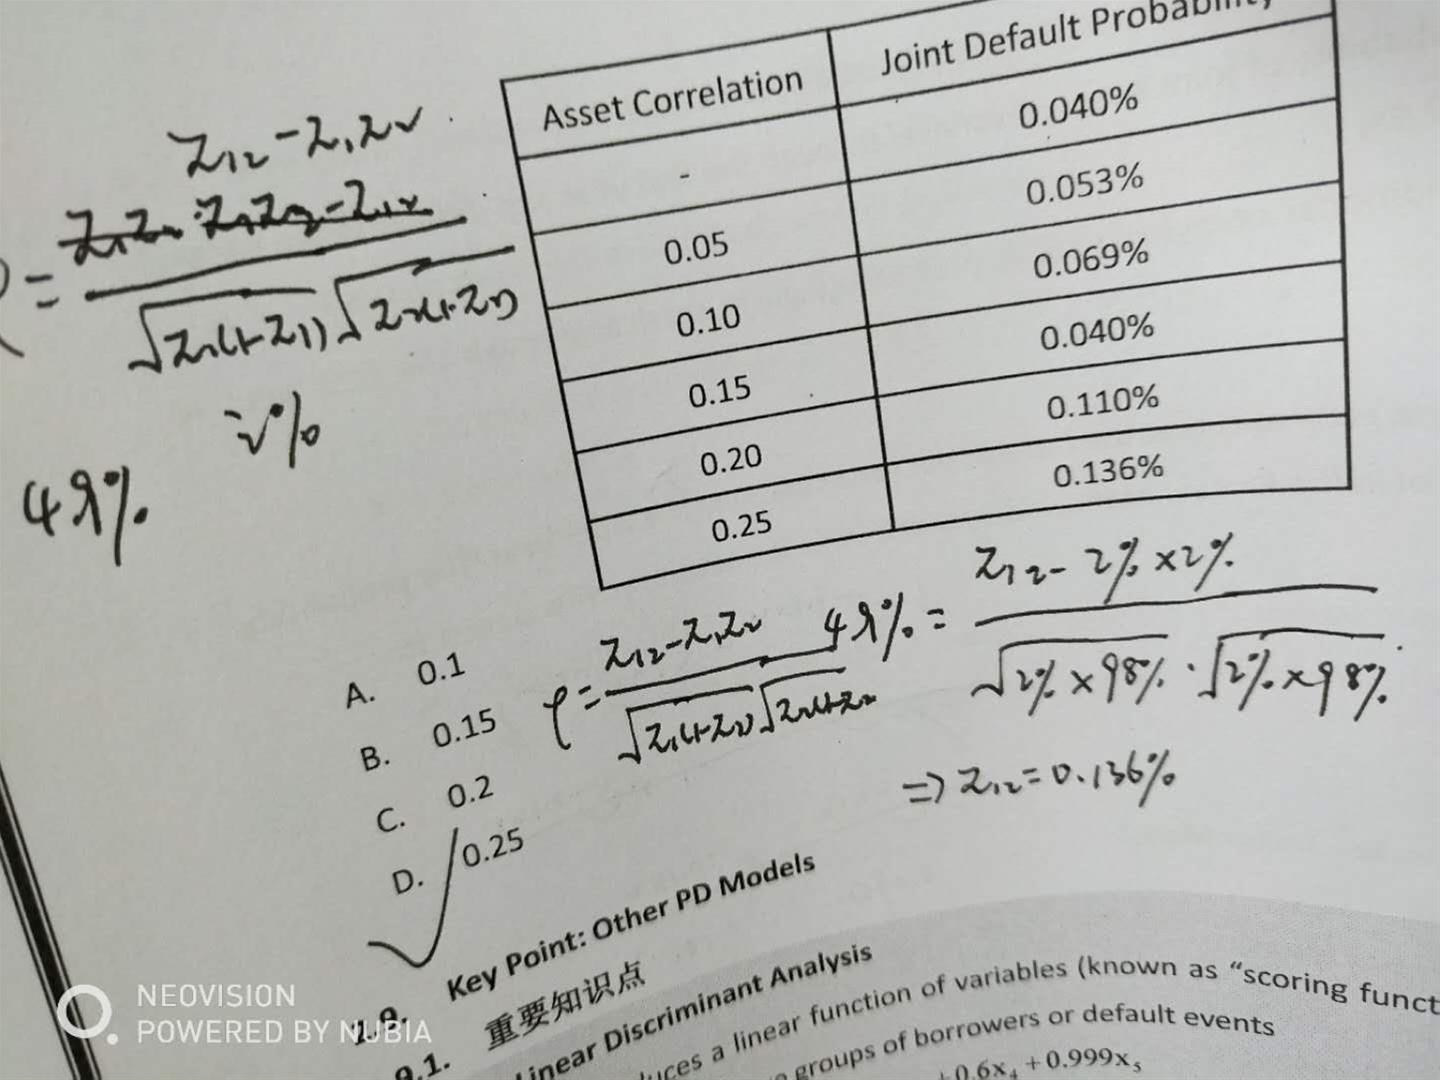 Asset Correlation
Joint Default Probability
-
0.040%
0.05
0.053%
0.10
0.069%
0.15
0.040%
0.20
0.110%
0.25
0.136%
Z₁₂-Z₁Z₂
=
√Z₁(1-Z₁) √Z₂(1-Z₂)
=2%
A. 0.1
B. 0.15
C. 0.2
D. 0.25
ρ = Z₁₂-Z₁Z₂ / √Z₁(1-Z₁) √Z₂(1-Z₂)
= Z₁₂- 2% ×2% / √2% ×98% · √2% ×98%
=> Z₁₂=0.136%
Key Point: Other PD Models
9.1. 重要知识点
Linear Discriminant Analysis
a linear function of variables (known as "scoring funct
groups of borrowers or default events
+0.6x₄ +0.999x₅
NEOVISION
POWERED BY NUBIA